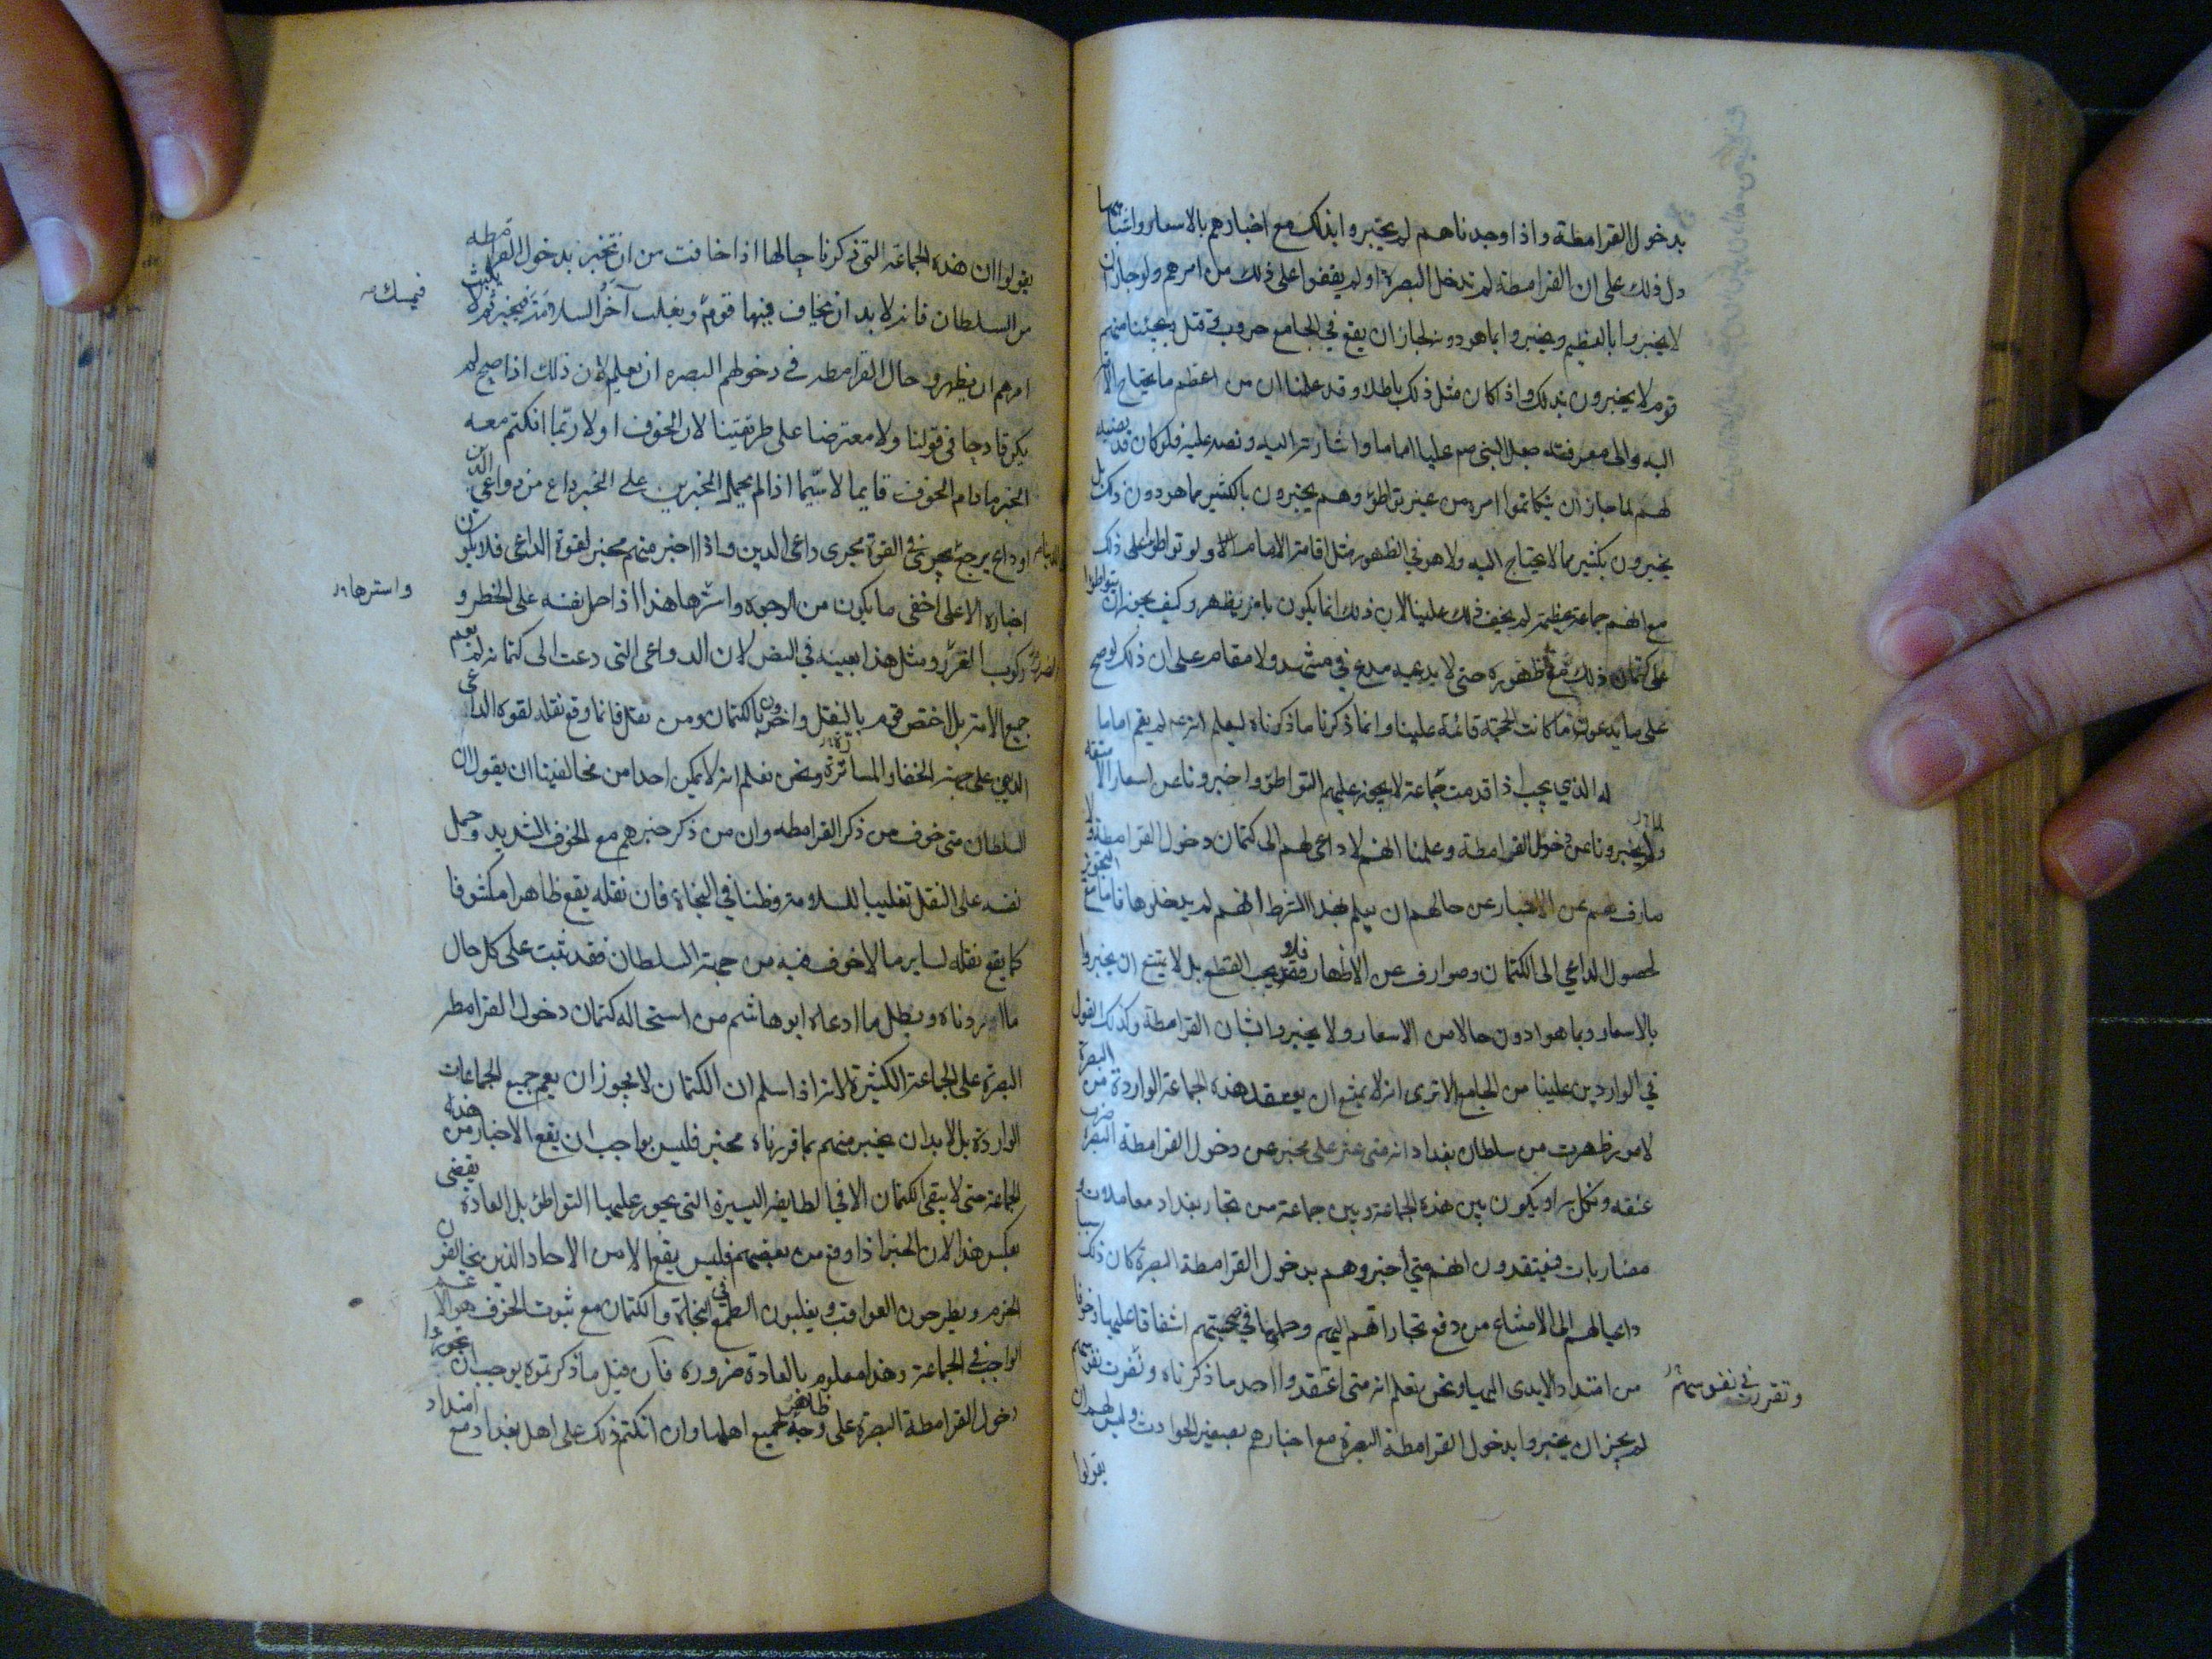 بدخول القرامطة واذا وجدناهم لم يخبروا بذلك مع اخبارهم بالاسعار واشباهها
دل ذلك على ان القرامطة لم تدخل البصرة او لم يقفوا على ذلك من امرهم ولو جاز ان
لا يخبروا بالعظيم ويخبروا بما هو دونه لجاز ان يقع في الجامع حروب وقتل ويجيئنا منهم
قوم لا يخبرون بذلك واذا كان مثل ذلك باطلا وقد علمنا ان من اعظم ما يحتاج الامة
اليه والى معرفته جعل النبي صم عليا اماما واشارته اليه ونصه عليه فلو كان قد نصبه
لهم لما جاز ان يتكاتموا امره من غير تواطؤ وهم يخبرون بالكثير مما هو دون ذلك بل
يخبرون بكثير مما لا يحتاج اليه ولا هو في الظهور مثل اقامة الامام ولو تواطؤا على ذلك
مع انهم جماعة عظيمة لم يخف ذلك علينا لان ذلك انما يكون بامر يظهر وكيف يجوز ان يتواطؤا
على كتمان ذلك مع ظهوره حتى لا يدعيه مدع في مشهد ولا مقام على ان ذلك لو صح
على ما يدعون ما كانت الحجة قائمة علينا وانما ذكرنا ما ذكرناه ليعلم انه لم يقم اماما
له الذي يجب اذا قدمت جماعة لا يجوز عليهم التواطؤ واخبرونا عن اسعار الامتعة
ولم يخبرونا عن دخول القرامطة وعلمنا انهم لا داعى لهم الى كتمان دخول القرامطة ولا
صارف لهم عن الاخبار عن حالهم ان يعلم بهذا الشرط انهم لم يدخلوها فاما مع التجويز
لحصول الداعي الى الكتمان وصوارف عن الاظهار فلا يجب القطع بل لا يمتنع ان يخبروا
بالاسعار وبما هو ادون حالا من الاسعار ولا يخبروا بشان القرامطة وكذلك القول
في الواردين علينا من الجامع الا ترى انه لا يمتنع ان يعتقد هذه الجماعة الواردة من البصرة
لامور ظهرت من سلطان بغداد انه متى عثر على مخبر عن دخول القرامطة البصرة ضرب
عنقه ونكل به او يكون بين هذه الجماعة وبين جماعة من تجار بغداد معاملات و
مضاربات فيعتقدون انهم متى اخبروهم بدخول القرامطة البصرة كان ذلك سببا
داعيا لهم الى الامتناع من دفع تجاراتهم اليهم وحملها في صحبتهم اشفاقا عليها وخوفا
من امتداد الايدى اليها ونحن نعلم انه متى اعتقدوا احد ما ذكرناه وتقررت نفوسهم
وتقررت في نفوسهم
لم يجز ان يخبروا بدخول القرامطة البصرة مع اخبارهم بصغير الحوادث وليس لهم ان
يقولوا
يقولوا ان هذه الجماعة التي ذكرنا حالها اذا خافت من ان تخبر بدخول القرامطه
من السلطان فانه لا بد ان يخاف فيها قوم ويغلب آخر السلامة فيخبر ثم لا يلبث
فيمسك
امرهم ان يظهر وحال القرامطه في دخولهم البصره ان يعلم لان ذلك اذا صح لم
يكن قادحا في قولنا ولا معترضا على طريقتنا لان الخوف اولا ربما انكتم معه
الخبر ما دام الخوف قايما لا سيما اذا لم يحمل المخبرين على الخبر داع من دواعي الدين
او داع يرجح يجرى في القوة مجرى داعى الدين واذا اخبر منهم مخبر لقوة الداعى فلا يكون
اخباره الا على اخفى ما يكون من الوجوه واسترها هذا اذا حمل نفسه على الخطر و
واسترها
ركوب الغرر ومثل هذا بعينه في النص لان الدواعى التى دعت الى كتمانه لم يعم
جميع الامة بل اختص قوم بالنقل واخرون بالكتمان ومن نقل فانما وقع نقله لقوه الداعى
الديني على جهة الخفا والمساترة ونحن نعلم انه لا يمكن احدا من مخالفينا ان يقول ان
السلطان متى خوف من ذكر القرامطه وان من ذكر خبرهم مع الخوف الشديد وحمل
نفسه على النقل تغليبا للسلامة وظنا في النجاة فان نقله يقع ظاهرا مكشوفا
كما يقع نقله لساير ما لا خوف فيه من جهة السلطان فقد ثبت على كل حال
ما اوردناه وبطل ما ادعاه ابو هاشم من استحاله كتمان دخول القرامطه
البصرة على الجماعة الكثيرة لانه اذا سلم ان الكتمان لا يجوز ان يعم جميع الجماعات
الواردة بل لا بد ان يخبر منهم بما قررناه مخبر فليس بواجب ان يقع الاخبار من هذه
الجماعة حتى لا يبقى الكتمان الا في الطايفه اليسيرة التي يجوز عليها التواطؤ بل العادة يقضى
بعكس هذا لان الخبر اذا وقع من بعضهم فليس يقع الا من الاحاد الذين يخالفون
الحزم ويطرحون العواقب ويغلبون الطمع في النجاة والكتمان مع ثبوت الخوف هو الاعم
الواجب في الجماعة وهذا معلوم بالعادة ضروره فان قيل ما ذكرتموه يوجب ان تجوزوا
دخول القرامطة البصرة على وجه ظاهر لجميع اهلها وان انكتم ذلك على اهل بغداد مع امتداد